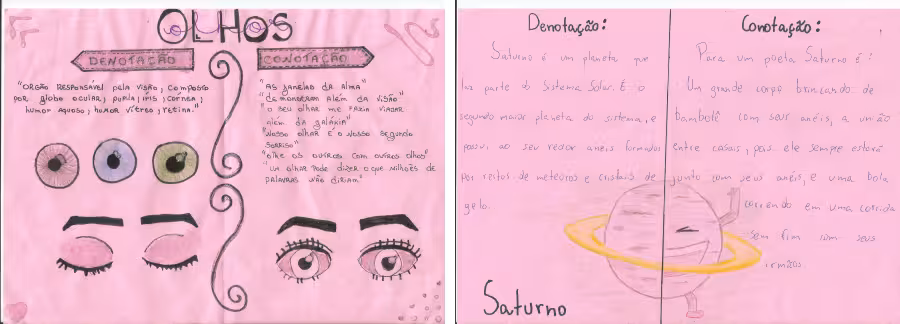 OLHOS
DENOTAÇÃO
"ORGÃO RESPONSÁVEL PELA VISÃO; COMPOSTO
POR GLOBO OCULAR; PUPILA; ÍRIS; CÓRNEA;
HUMOR AQUOSO; HUMOR VÍTREO; RETINA."
CONOTAÇÃO
"AS JANELAS DA ALMA"
ALÉM DA VISÃO"
"O SEU OLHAR ME FAZIA VIAJAR
ALÉM DA GALÁXIA"
"NOSSO OLHAR É O NOSSO SEGUNDO
SORRISO"
"OLHE OS OUTROS COM OUTROS OLHOS"
"UM OLHAR PODE DIZER O QUE MILHÕES DE
PALAVRAS NÃO DIRIAM"
Denotação:
Saturno é um planeta que
faz parte do Sistema Solar. É o
segundo maior planeta do sistema, e
possui ao seu redor anéis formados
por restos de meteoros e cristais de
gelo.
Saturno
Conotação:
Para um poeta Saturno é:
Um grande corpo brincando de
bambolê com seus anéis, a união
entre casais, pois ele sempre estará
junto com seus anéis, e uma bola
correndo em uma corrida
sem fim com seus
irmãos.